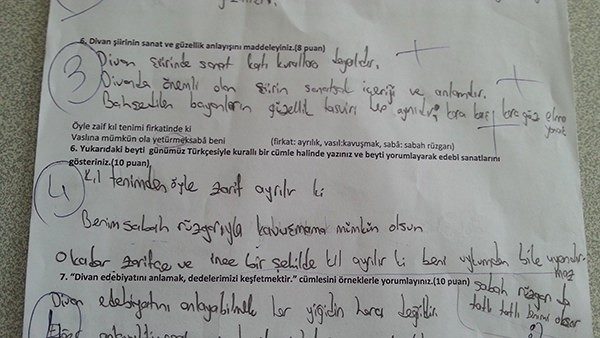 6. Divan şiirinin sanat ve güzellik anlayışını maddeleyiniz.(8 puan)
3
Divan şiirinde sanat katı kurallara dayalıdır.
Divanda önemli olan şiirin sanatsal içeriği ve anlamıdır.
Bahsedilen bayanların güzellik tasviri hep aynıdır; kara kaş, kara göz, elma yanak
Öyle zaif kıl tenimi firkatinde ki
Vaslına mümkün ola yetürmeksabâ beni (firkat: ayrılık, vasıl:kavuşmak, sabâ: sabah rüzgarı)
6. Yukarıdaki beyti günümüz Türkçesiyle kurallı bir cümle halinde yazınız ve beyti yorumlayarak edebi sanatlarını
gösteriniz.(10 puan)
4
Kıl tenimden öyle zarif ayrılır ki
Benim sabah rüzgarıyla kavuşmama mümkün olsun
O kadar zarifçe ve ince bir şekilde kıl ayrılır ki beni uykumdan bile uyandırmaz
sabah rüzgarı da
tatlı tatlı
:)
7. "Divan edebiyatını anlamak, dedelerimizi keşfetmektir." cümlesini örneklerle yorumlayınız.(10 puan)
Divan edebiyatını anlayabilmek her yiğidin harcı değildir.
Eğer